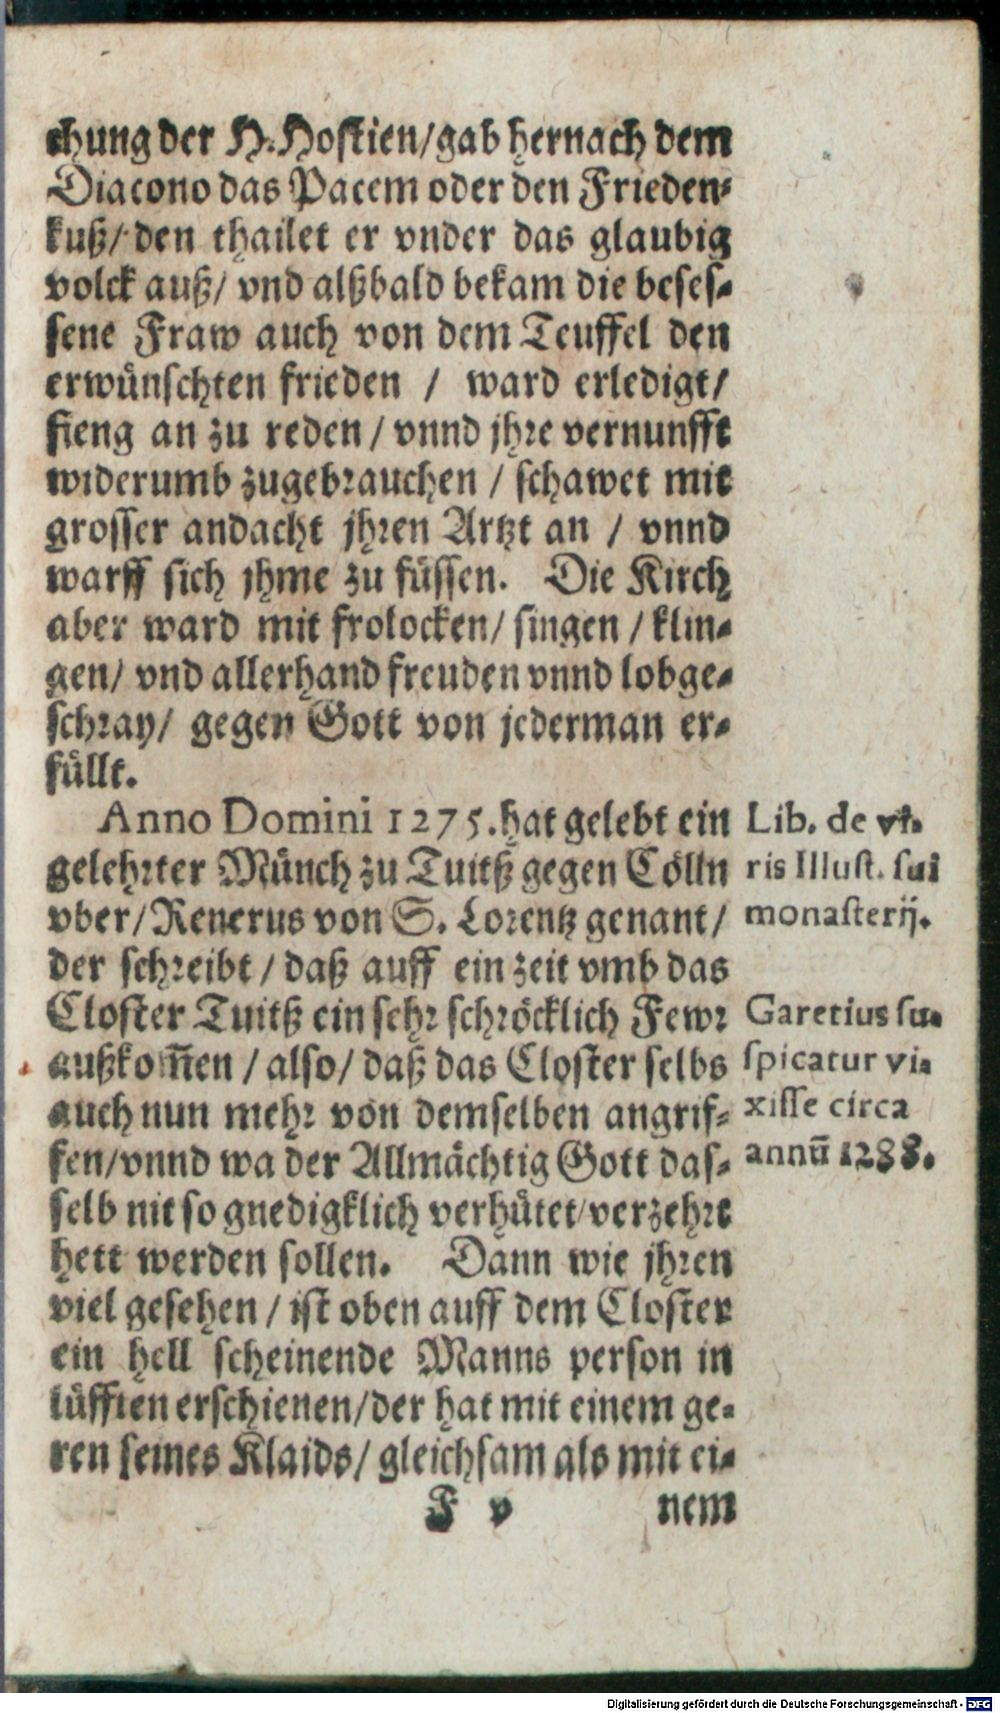 chung der H. Hostien/gab hernach dem
Diacono das Pacem oder den Frieden-
kuß/ den thailet er vnder das glaubig
volck auß/ vnd alßbald bekam die beses-
sene Fraw auch von dem Teuffel den
erwünschten frieden / ward erledigt/
fieng an zu reden / vnnd jhre vernunfft
widerumb zugebrauchen / schawet mit
grosser andacht jhren Artzt an / vnnd
warff sich jhme zu füssen. Die Kirch
aber ward mit frolocken/ singen / klin-
gen/ vnd allerhand freuden vnnd lobge-
schray/ gegen Gott von jederman er-
füllt.
Anno Domini 1275. hat gelebt ein
gelehrter Münch zu Tuitß gegen Cölln
vber/Renerus von S. Lorentz genant/
der schreibt / daß auff ein zeit vmb das
Closter Tuitß ein sehr schröcklich Fewr
außkom̃en / also/ daß das Closter selbs
auch nun mehr von demselben angrif-
fen/vnnd wa der Allmächtig Gott das-
selb nit so gnedigklich verhütet/verzehrt
hett werden sollen. Dann wie jhren
viel gesehen / ist oben auff dem Closter
ein hell scheinende Manns person in
lüfften erschienen/der hat mit einem ge-
ren seines Klaids/ gleichsam als mit ei-
F v nem
Lib. de vi-
ris Illust. sui
monasterij.
Garetius su-
spicatur vi-
xisse circa
annū 1288.
Digitalisierung gefördert durch die Deutsche Forschungsgemeinschaft - DFG